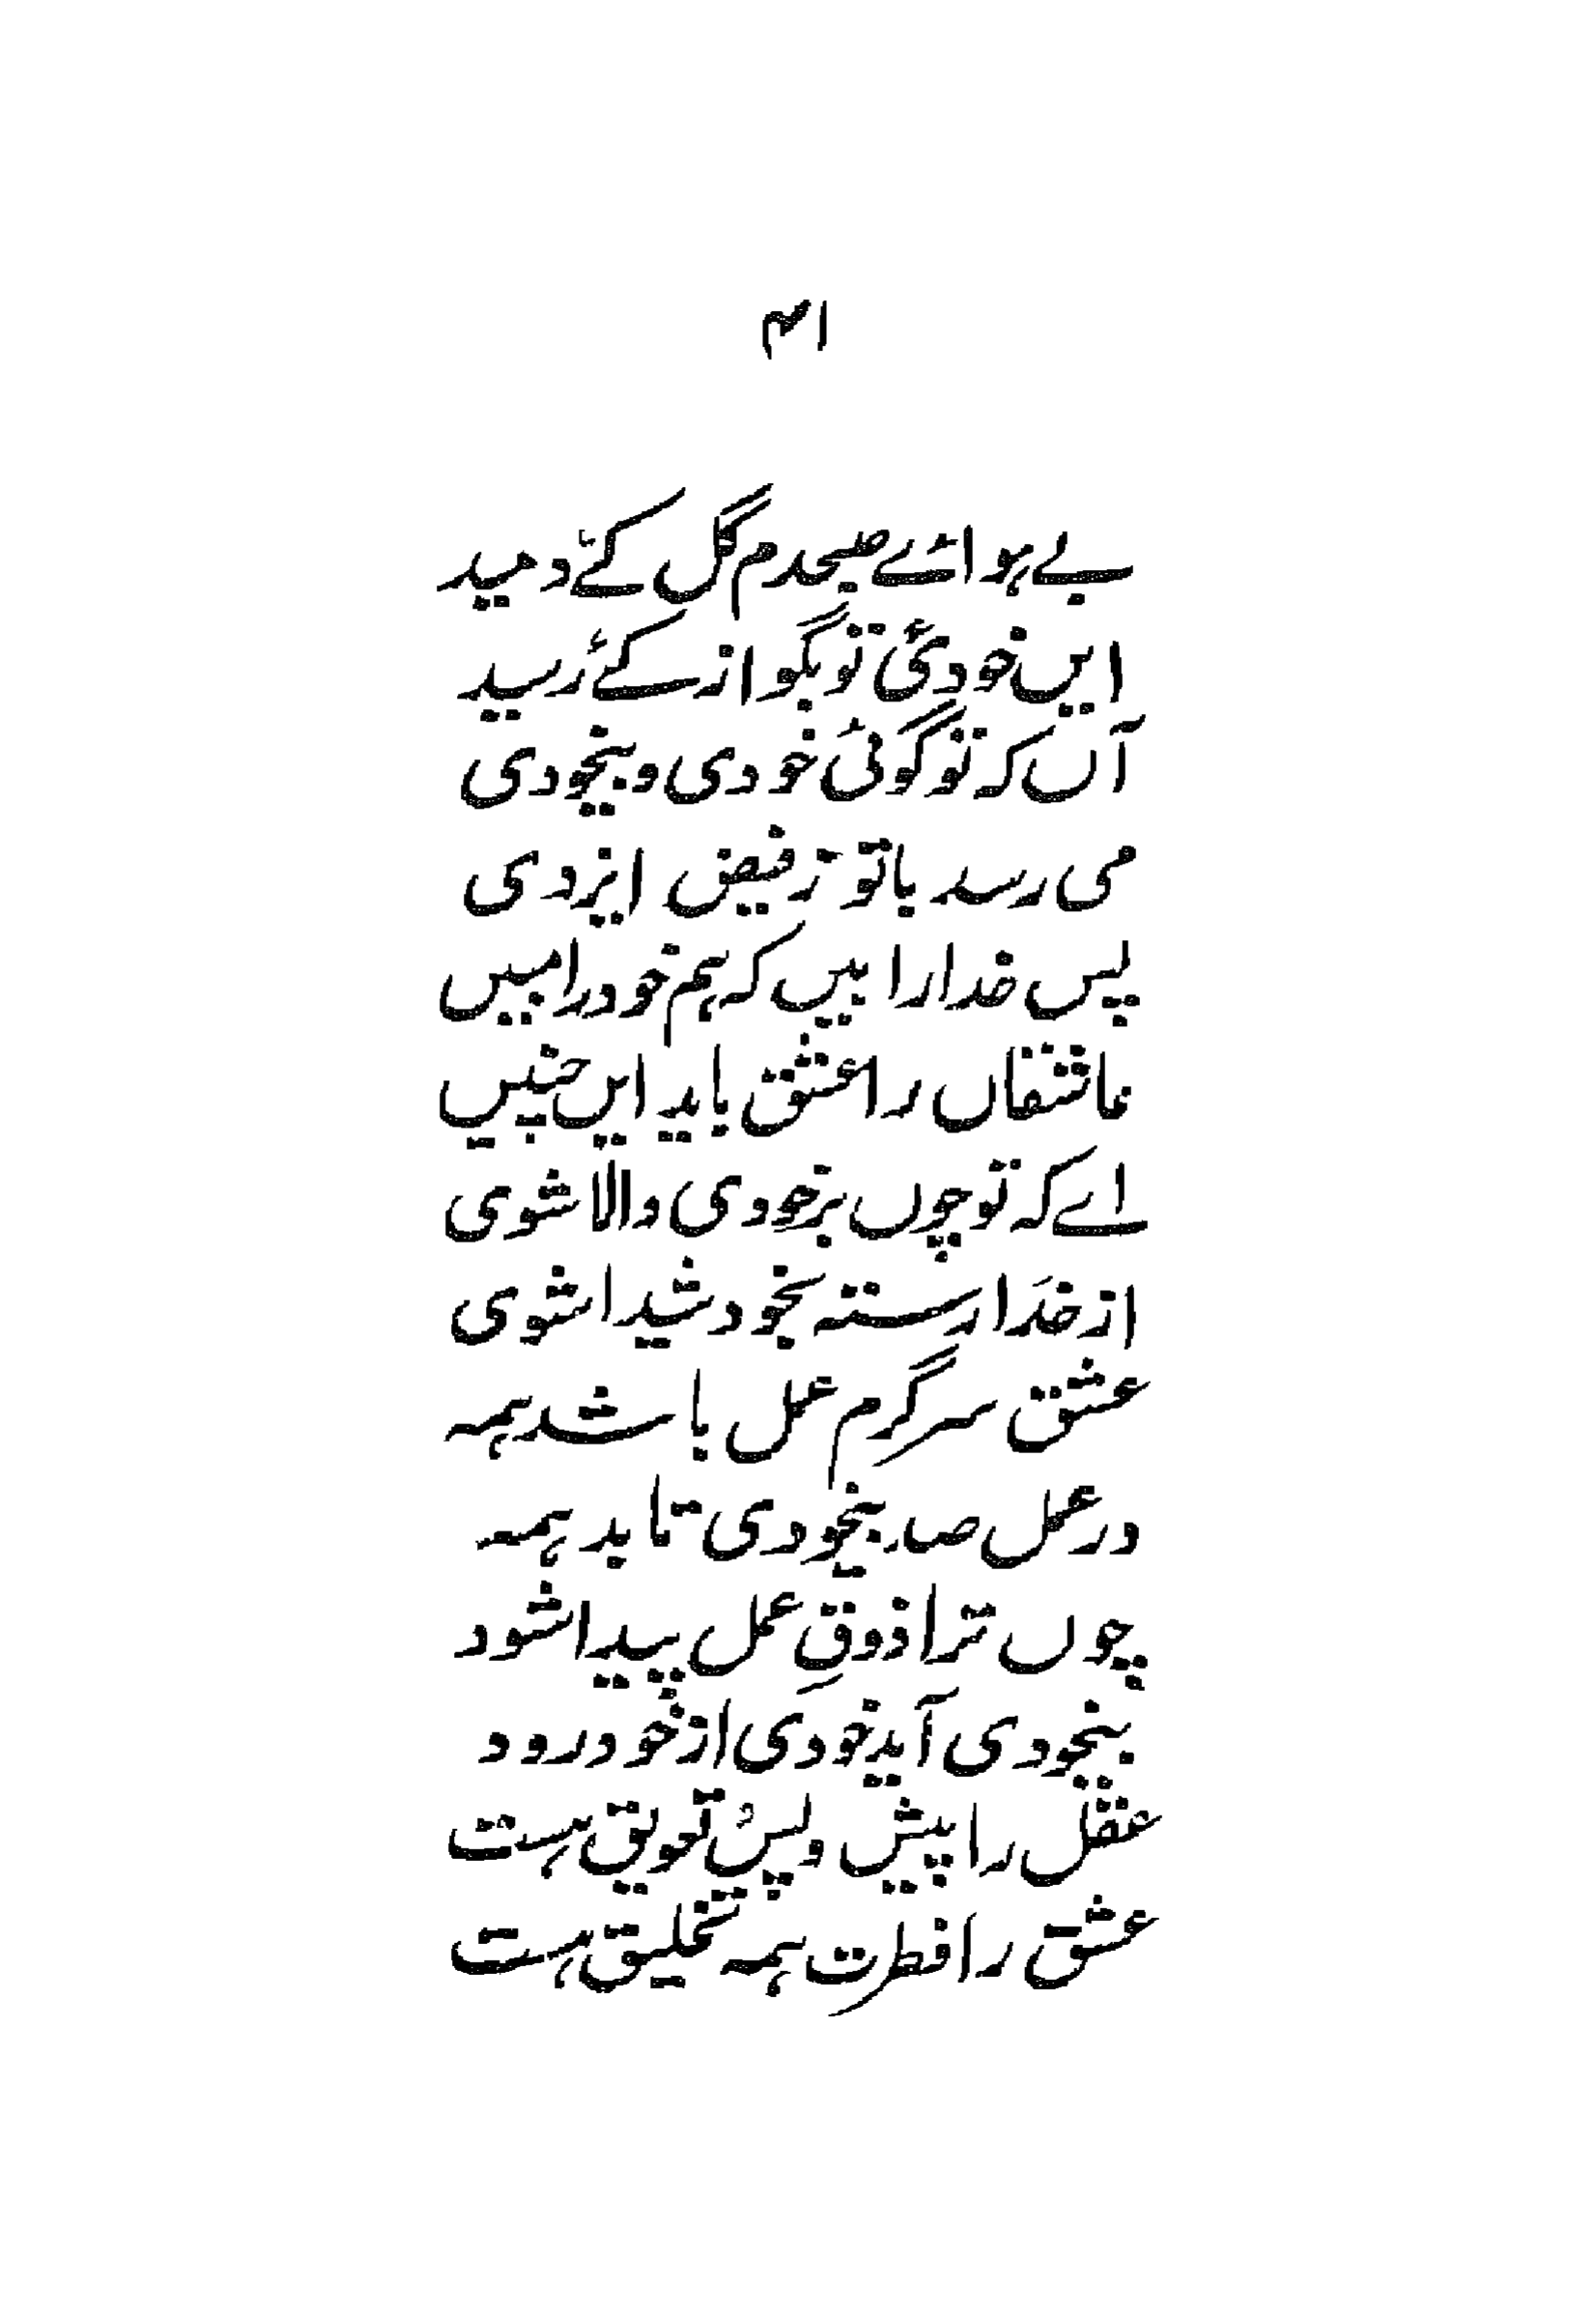 ۴۱
بے ہوائے صبحدم گل کئے دمید
ایں خودیٔ تو بگو از کئے رسید
آں کہ تو گوئی خودی و بیخودی
می رسد با تو ز فیض ایزدی
پس خدارا بیں کہ ہم خود را مبیں
عاشقاں را عشق باید ایں چنیں
اے کہ تو چوں بر خودی والا شوی
از خدا رستہ بخود شیدا شوی
عشق سرگرم عمل باشد ہمہ
در عمل صد بیخودی تابد ہمہ
چوں ترا ذوقِ عمل پیدا شود
بیخودی آید خودی از خود رود
عقل را پیش و پس تعویق ہست
عشق را فطرت ہمہ تخلیق ہست